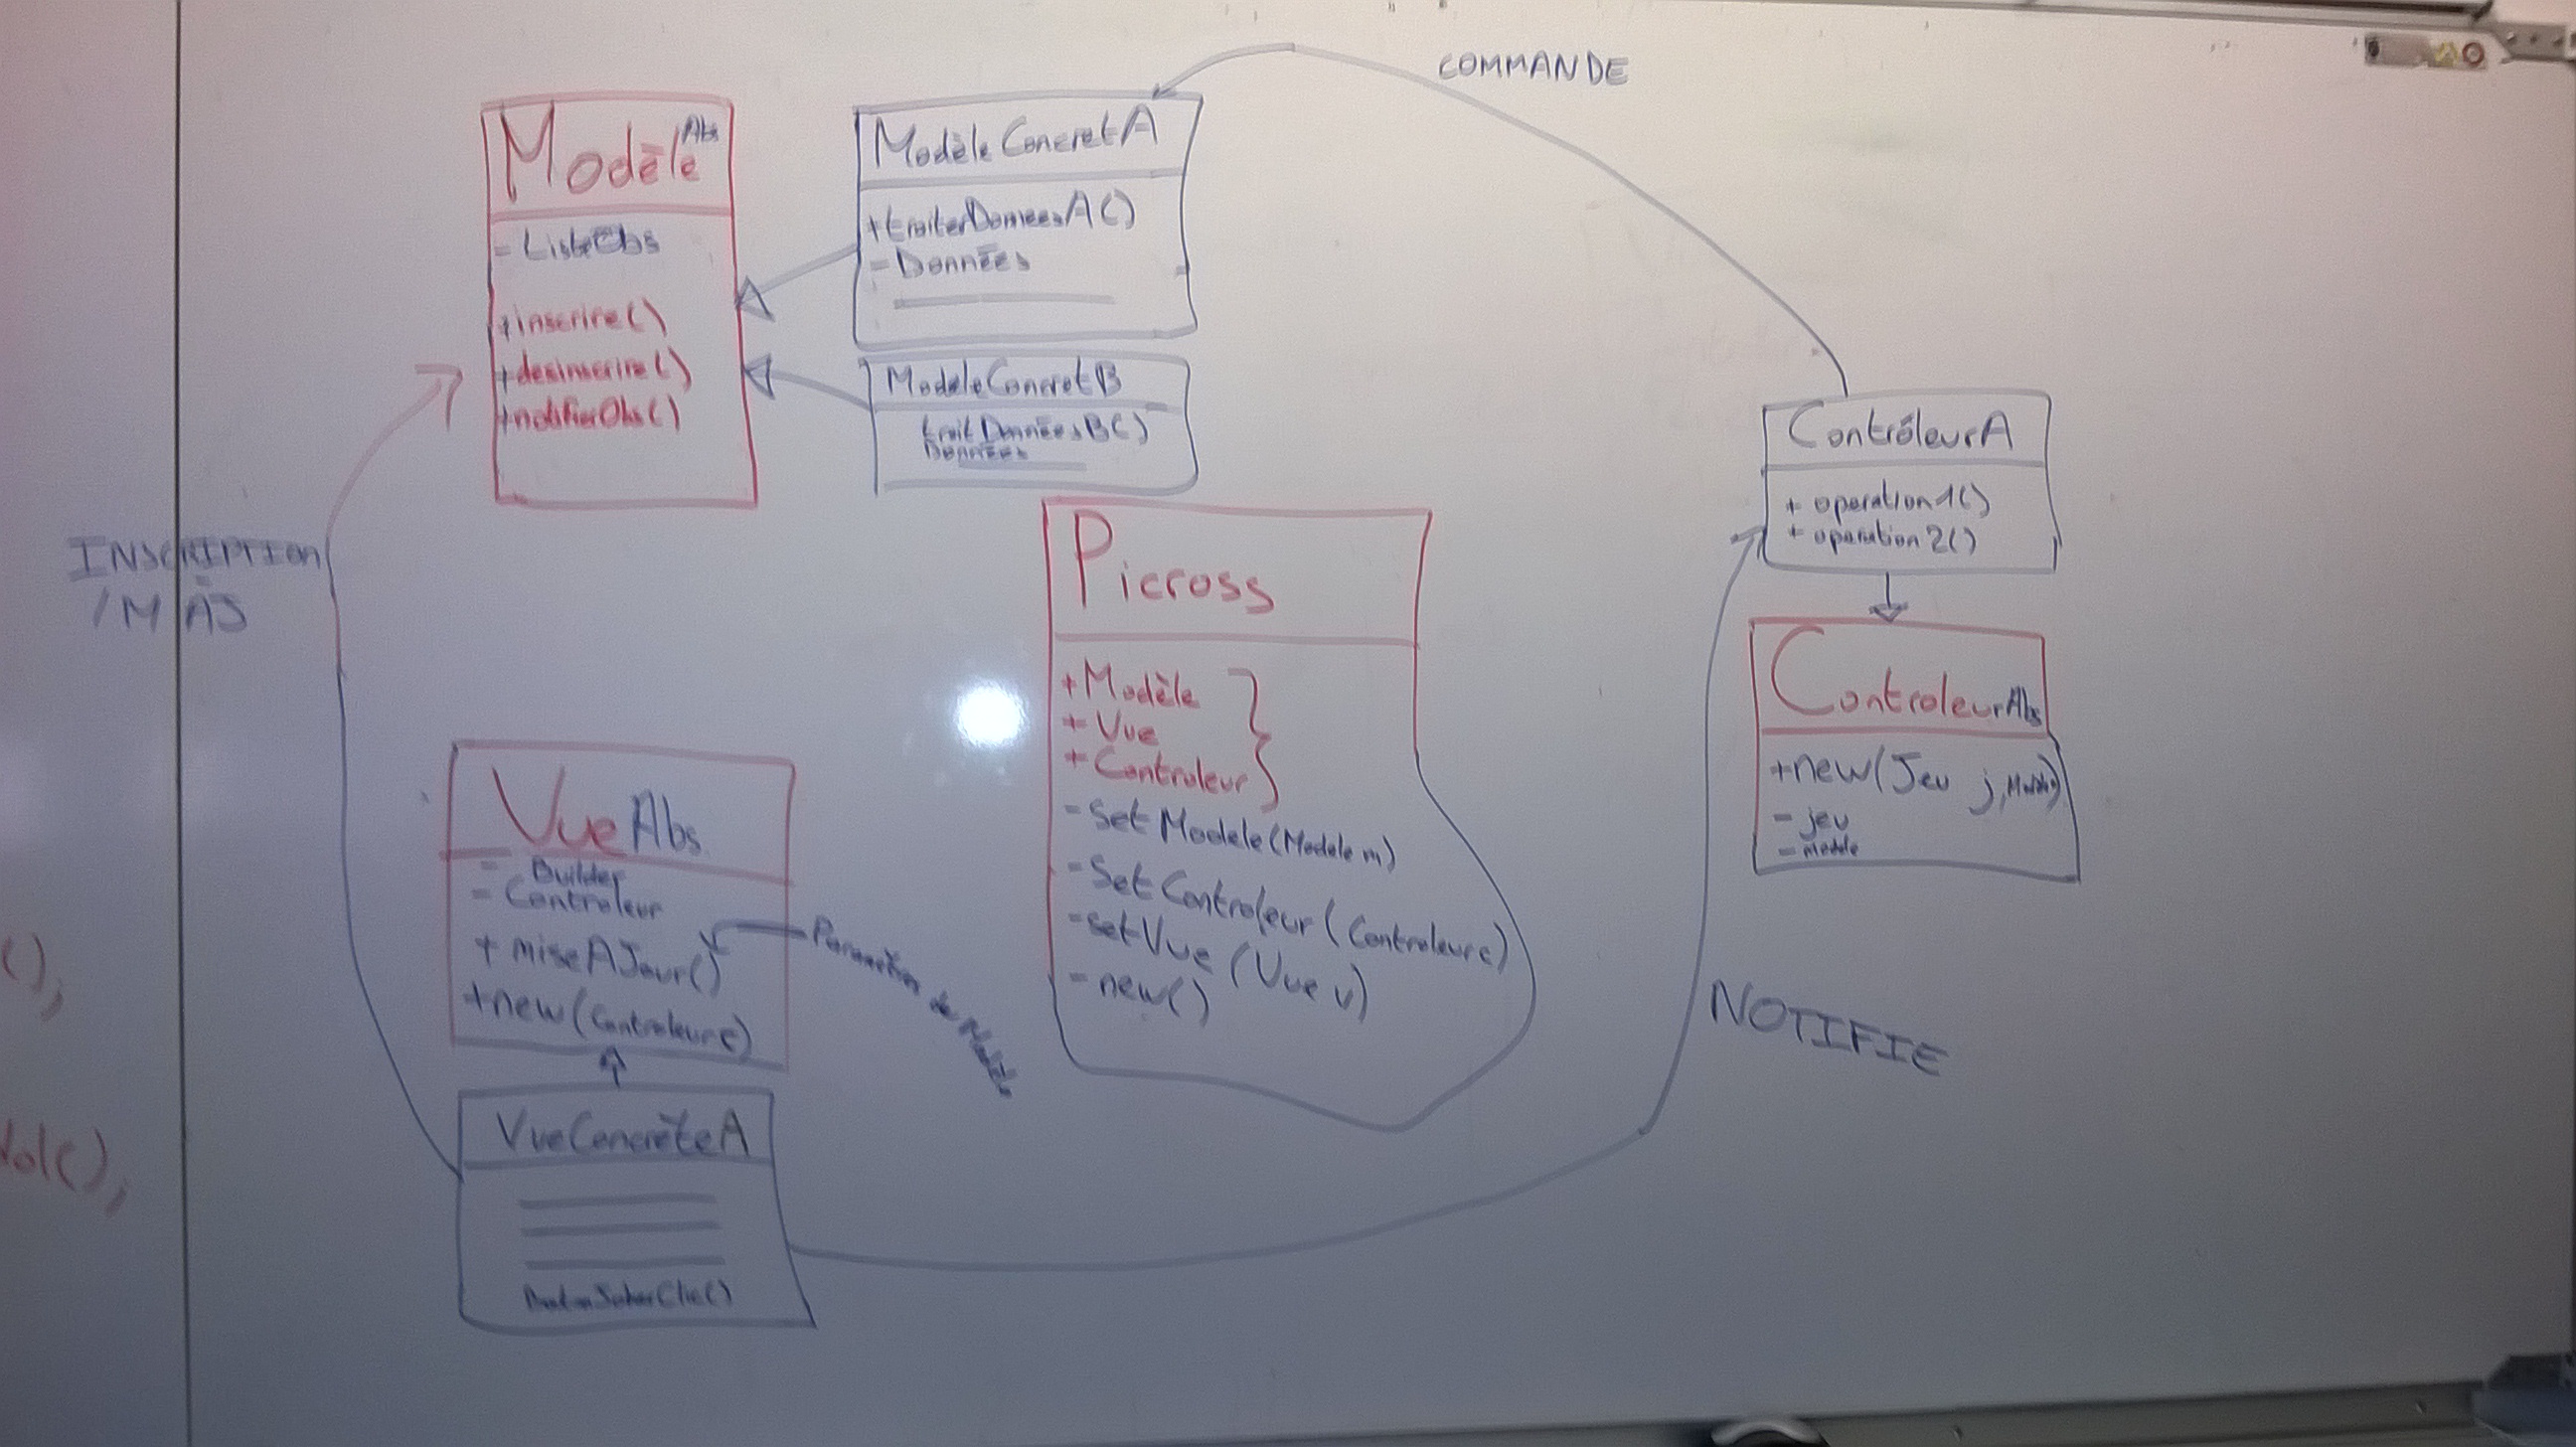 COMMANDE
Modèle Abs
- ListeObs
+inscrire()
+desinscrire()
+notifierObs()
ModèleConcretA
+traiterDonneesA()
- Données
ModeleConcretB
traitDonnéesB()
Données
INSCRIPTION
/MÀJ
ContrôleurA
+ operation1()
+ operation2()
ControleurAbs
+new(Jeu j,
- jeu
- modele
Picross
+Modèle
+ Vue
+ Controleur
- Set Modele (Modele m)
- Set Controleur (Controleur c)
- setVue (Vue v)
- new()
VueAbs
- Builder
- Controleur
+ miseAJour()
+new(Controleur c)
de Modèle
VueConcrèteA
NOTIFIE
();